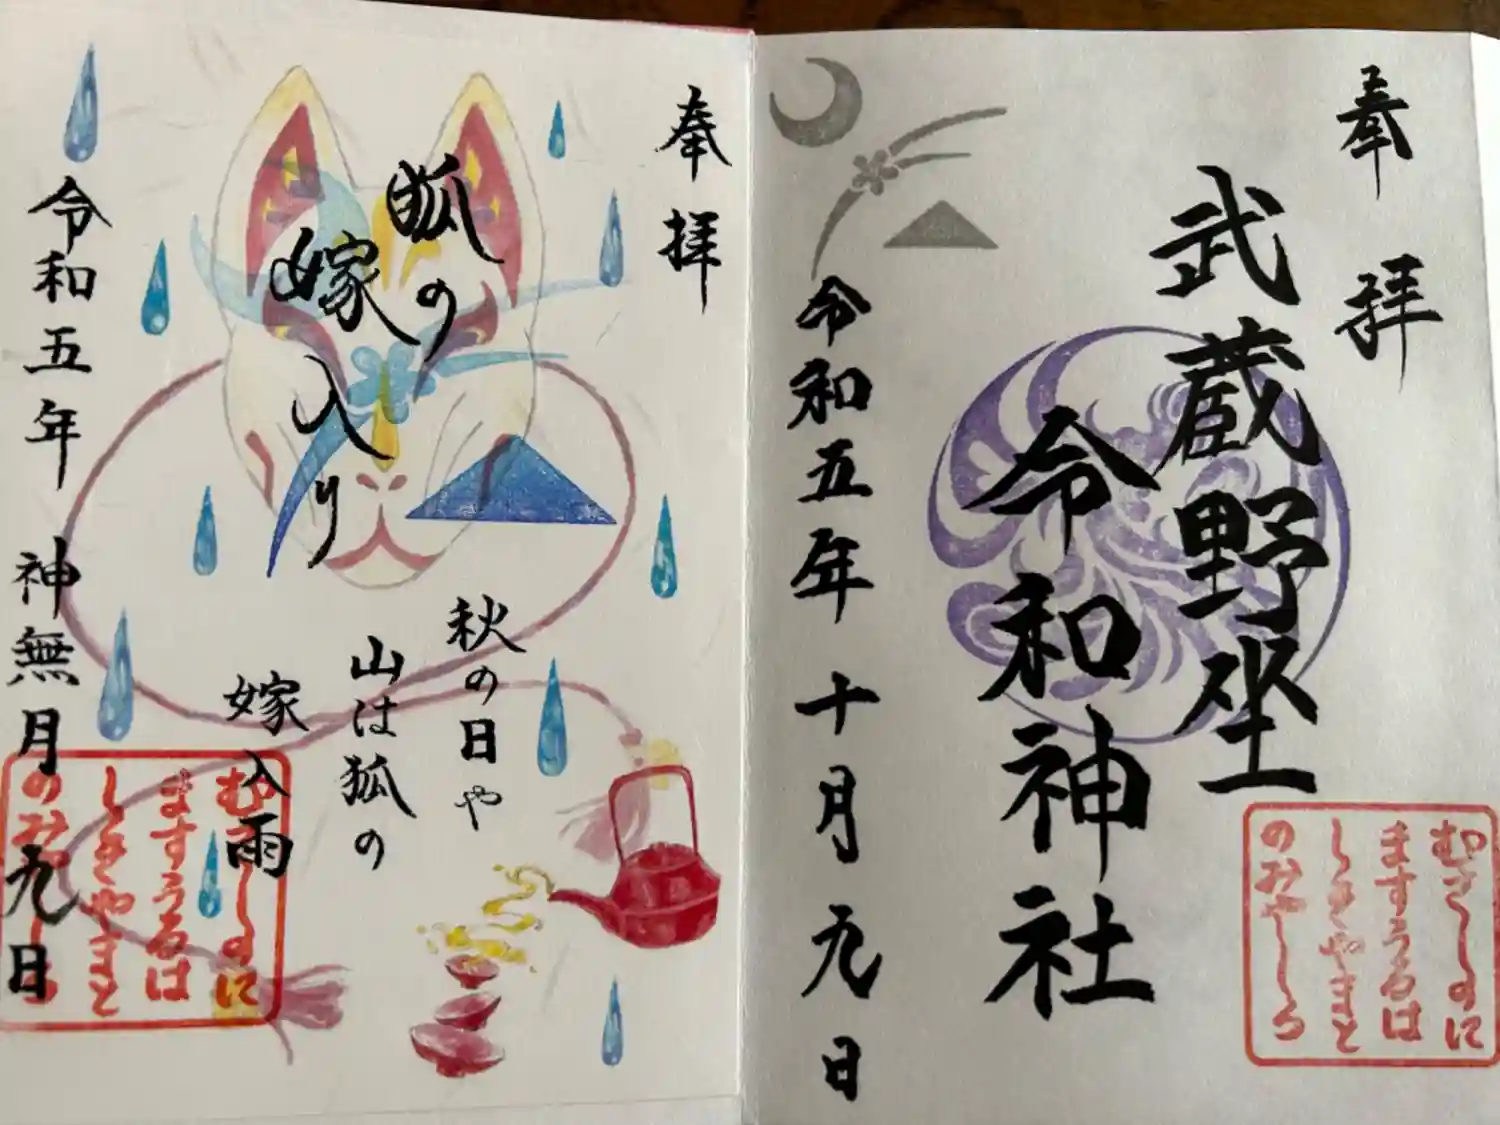 奉拝
武蔵野坐
令和神社
令和五年十月九日
むさしのに
ますうるは
しきやまと
のみやしろ
奉拝
狐の
嫁入り
秋の日や
山は狐の
嫁入雨
令和五年 神無月九日
むさしのに
ますうるは
しきやまと
のみやしろ